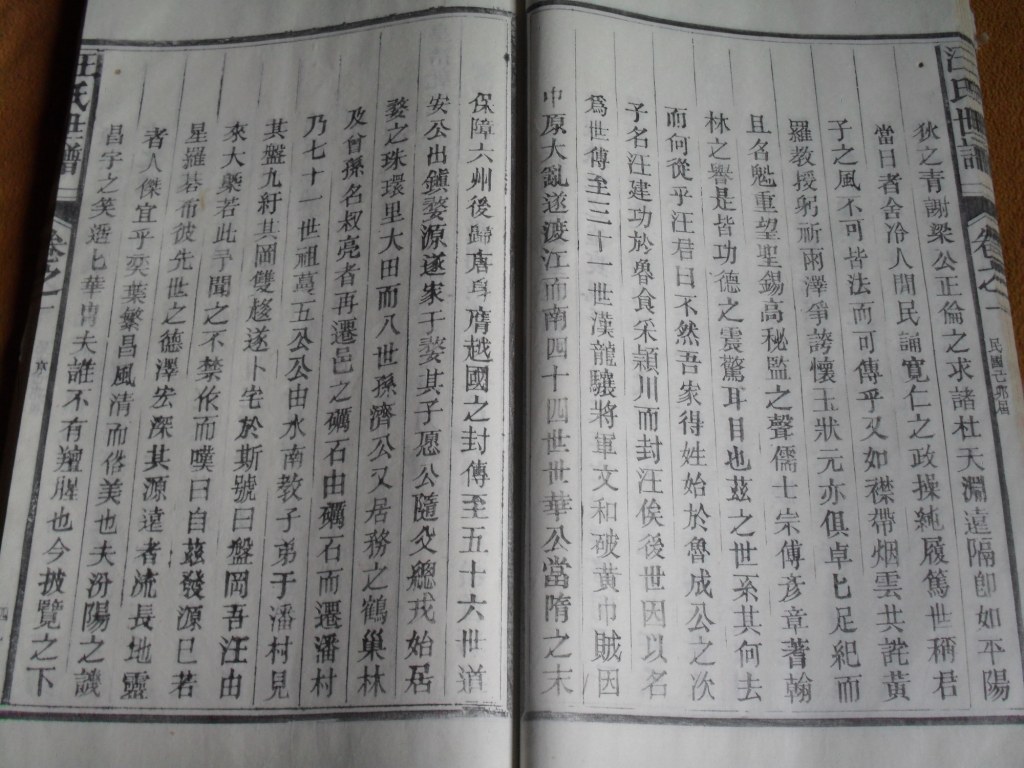 汪氏世譜
卷之一
民國七邜屆
狄之青謝梁公正倫之求諸杜天淵遠隔卽如平陽
當日者舍冾人閒民誦寬仁之政操純履篤世稱君
子之風不可皆法而可傳乎又如襟帶烟雲共詫黃
羅教授躬祈雨澤爭誇懷玉狀元亦俱卓匕足紀而
且名魁重望聖錫高秘監之聲儒士宗傳彥章著翰
林之譽是皆功德之震驚耳目也茲之世系其何去
而何從乎汪君曰不然吾家得姓始於魯成公之次
子名汪建功於魯食采潁川而封汪侯後世因以名
爲世傳至三十一世漢龍驤將軍文和破黃巾賊因
中原大亂遂渡江而南四十四世世華公當隋之末
保障六州後歸唐身膺越國之封傳至五十六世道
安公出鎮婺源遂家于婺其子愿公隨父總戎始居
婺之珠環里大田而八世孫濟公又居務之鶴巢林
及曾孫名叔亮者再遷邑之礪石由礪石而遷潘村
乃七十一世祖萬五公公由水南教子弟于潘村見
其盤九紆其岡雙趂遂卜宅於斯號曰盤岡吾汪由
來大槩若此予聞之不禁依而嘆曰自茲發源巳若
星羅碁布彼先世之德澤宏深其源遠者流長地靈
者人傑宜乎奕葉繁昌風淸而俗美也夫汾陽之譏
昌字之笑遙匕華胄夫誰不有羶腥也今披覽之下
汪氏世譜
卷之一